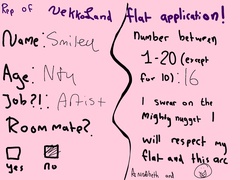 Rep of Nekkoland flat application!
Name: Smiley
Age: Nty
Job?!: Artist
Roommate?
yes no
Number between
1-20 (except
for 10): 16
I swear on the
Mighty nugget I
will respect my
flat and this arc
and